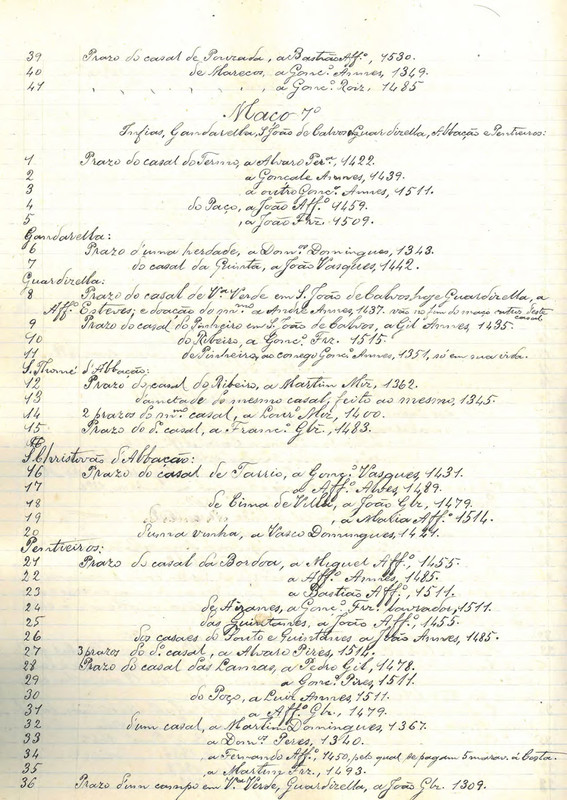 39 Prazo do casal de Pouzada, a Bastião Aff.º, 1530.
40 de Marecos, a Gonç.º Annes, 1349.
41 " " " , a Gonç.º Roiz, 1485
Maço 7º
Infias, Gandarella, S. João de Calvos e Guardizella, Abbação e Pentieiros:
1 Prazo do casal do Termo, a Alvaro Per.ª, 1422.
2 a Goncale Annes, 1439.
3 a outro Gonç.º Annes, 1511.
4 do Paço, a João Aff.º 1459.
5 , a João Frz. 1509.
Gandarella:
6 Prazo d'uma herdade, a Dom.ºs Domingues, 1343.
7 do casal da Quinta, a João Vasques, 1442.
Guardizella:
8 Prazo do casal de V.ª Verde em S. João de Calvos, hoje Guardizella, a
Aff.º Esteves; e doação do m.mo a André Annes, 1437. não no fim do maço outro deste casal
9 Prazo do casal do Pinheiro em S. João de Calvos, a Gil Annes, 1435.
10 do Ribeiro, a Gonç.º Frz. 1515.
11 de Pinheiro, ao conego Gonç.º Annes, 1351, só em sua vida.
S. Thomé d'Abbação:
12 Prazo do casal do Ribeiro, a Martim Miz, 1362.
13 da metade do mesmo casal, feito ao mesmo, 1345.
14 2 prazos do m.mo casal, a Lour.º Miz, 1400.
15 Prazo do d.º casal, a Franc.º Glz. 1483.
S. Christovão d'Abbação:
16 Prazo do casal de Tarrio, a Gonç.º Vasques, 1431.
17 a Aff.º Alves, 1489.
18 de Cima de Villa, a João Glz, 1479.
19 , a Maria Aff.º 1514.
20 d'uma vinha, a Vasco Domingues, 1421.
Pentieiros:
21 Prazo do casal da Bordoa, a Miguel Aff.º, 1455.
22 a Aff.º Annes, 1485.
23 a Bastião Aff.º, 1511.
24 de Airanes, a Gonç.º Frz. lavrador, 1511.
25 das Quintanes, a João Aff.º 1455.
26 dos casaes do Souto e Quintanes a João Annes, 1485.
27 3 prazos do d.º casal, a Alvaro Pires, 1514.
28 Prazo do casal das Lamas, a Pedro Gil, 1478.
29 a Gonç.º Pires, 1511.
30 do Poço, a Luiz Annes, 1511.
31 a Aff.º Glz., 1479.
32 d'um casal, a Martim Domingues, 1367.
33 a Dom.ºs Peres, 1340.
34 a Fernando Aff.º, 1450, pelo qual se pagam 5 marav. á Costa.
35 a Martim Frz., 1493.
36 Prazo d'um campo em V.ª Verde, Guardizella, a João Glz. 1309.